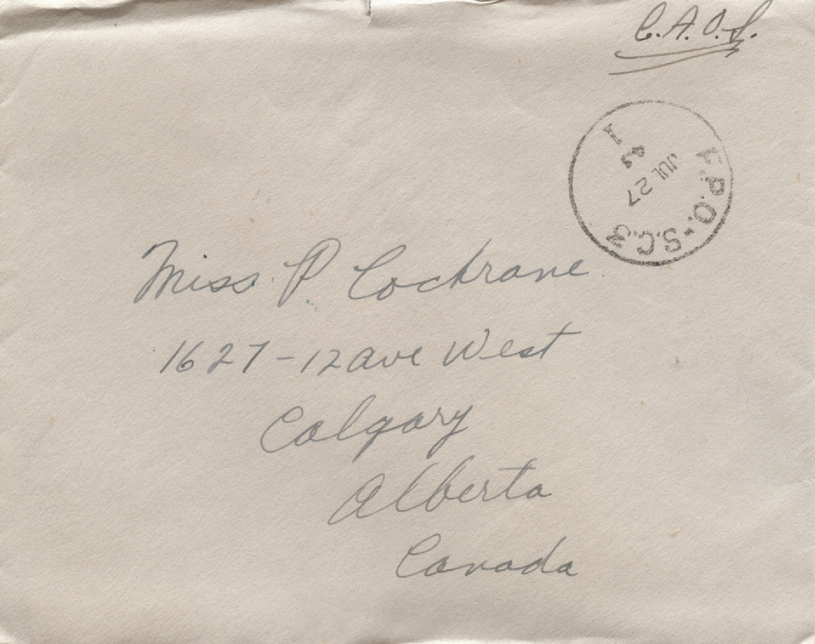 C.A.O.S.
F.P.O.-S.C.3
1
43
JUL 27
Miss P Cochrane
1627-12 ave West
Calgary
Alberta
Canada